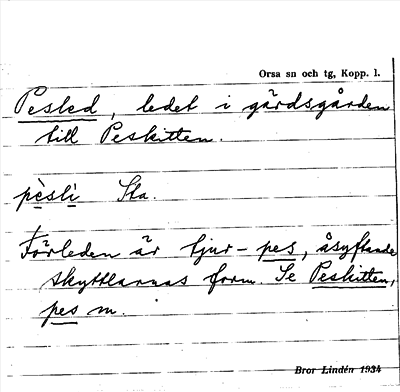 Orsa sn och tg, Kopp. l.
Pesled, ledet i gärdsgården
till Peskitten.
pèslì Sta.
Förleden är tjur- pes, åsyftande
skyttlarnas form. Se Peskitten,
pes m.
Bror Lindén 1934